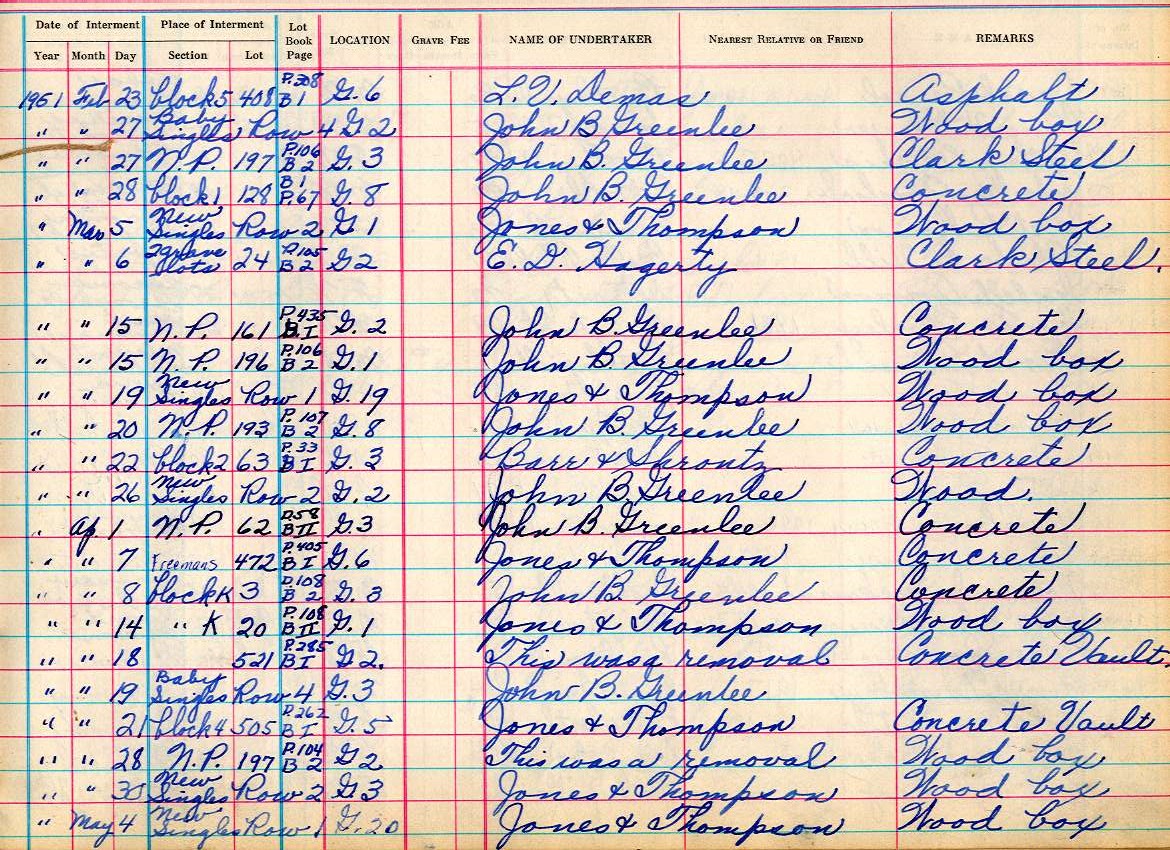 Date of Interment Place of Interment Lot Book Page LOCATION GRAVE FEE NAME OF UNDERTAKER NEAREST RELATIVE OR FRIEND REMARKS
Year Month Day Section Lot
1951 Feb 23 block 5 408 P.308 B 1 G. 6 L. V. Demas Asphalt
" " 27 Baby Singles Row 4 G. 2 John B Greenlee Wood box
" " 27 N. P. 197 P.106 B 2 G. 3 John B. Greenlee Clark Steel
" " 28 block 1 128 B 1 P.67 G. 8 John B. Greenlee Concrete
" Mar 5 New Singles Row 2 G 1 Jones & Thompson Wood box
" " 6 2 grave plots 24 P.105 B 2 G 2 E. D. Hagerty Clark Steel.
" " 15 N. P. 161 P.435 B.I G. 2 John B. Greenlee Concrete
" " 15 N. P. 196 P.106 B 2 G. 1 John B. Greenlee Wood box
" " 19 New Singles Row 1 G. 19 Jones & Thompson Wood box
" " 20 N. P 193 P.107 B 2 G. 8 John B. Greenlee Wood box
" " 22 block 2 63 P.33 B I G. 3 Barr & Shrontz Concrete
" " 26 New Singles Row 2 G. 2 John B. Greenlee Wood.
" Ap. 1 N. P. 62 P.58 B II G. 3 John B. Greenlee Concrete
" " 7 Freemans 472 P.405 B I G. 6 Jones & Thompson Concrete
" " 8 block K 3 P.108 B 2 G. 3 John B. Greenlee Concrete
" " 14 " K 20 P.108 B II G. 1 Jones & Thompson Wood box
" " 18 521 P.285 B I G 2. This was a removal Concrete Vault.
" " 19 Baby Singles Row 4 G. 3 John B. Greenlee
" " 21 block 4 505 P.262 B I G. 5 Jones & Thompson Concrete Vault
" " 28 N. P. 197 P.104 B 2 G 2 This was a removal Wood box
" " 30 New Singles Row 2 G 3 Jones & Thompson Wood box
" May 4 New Singles Row 1 G. 20 Jones & Thompson Wood box